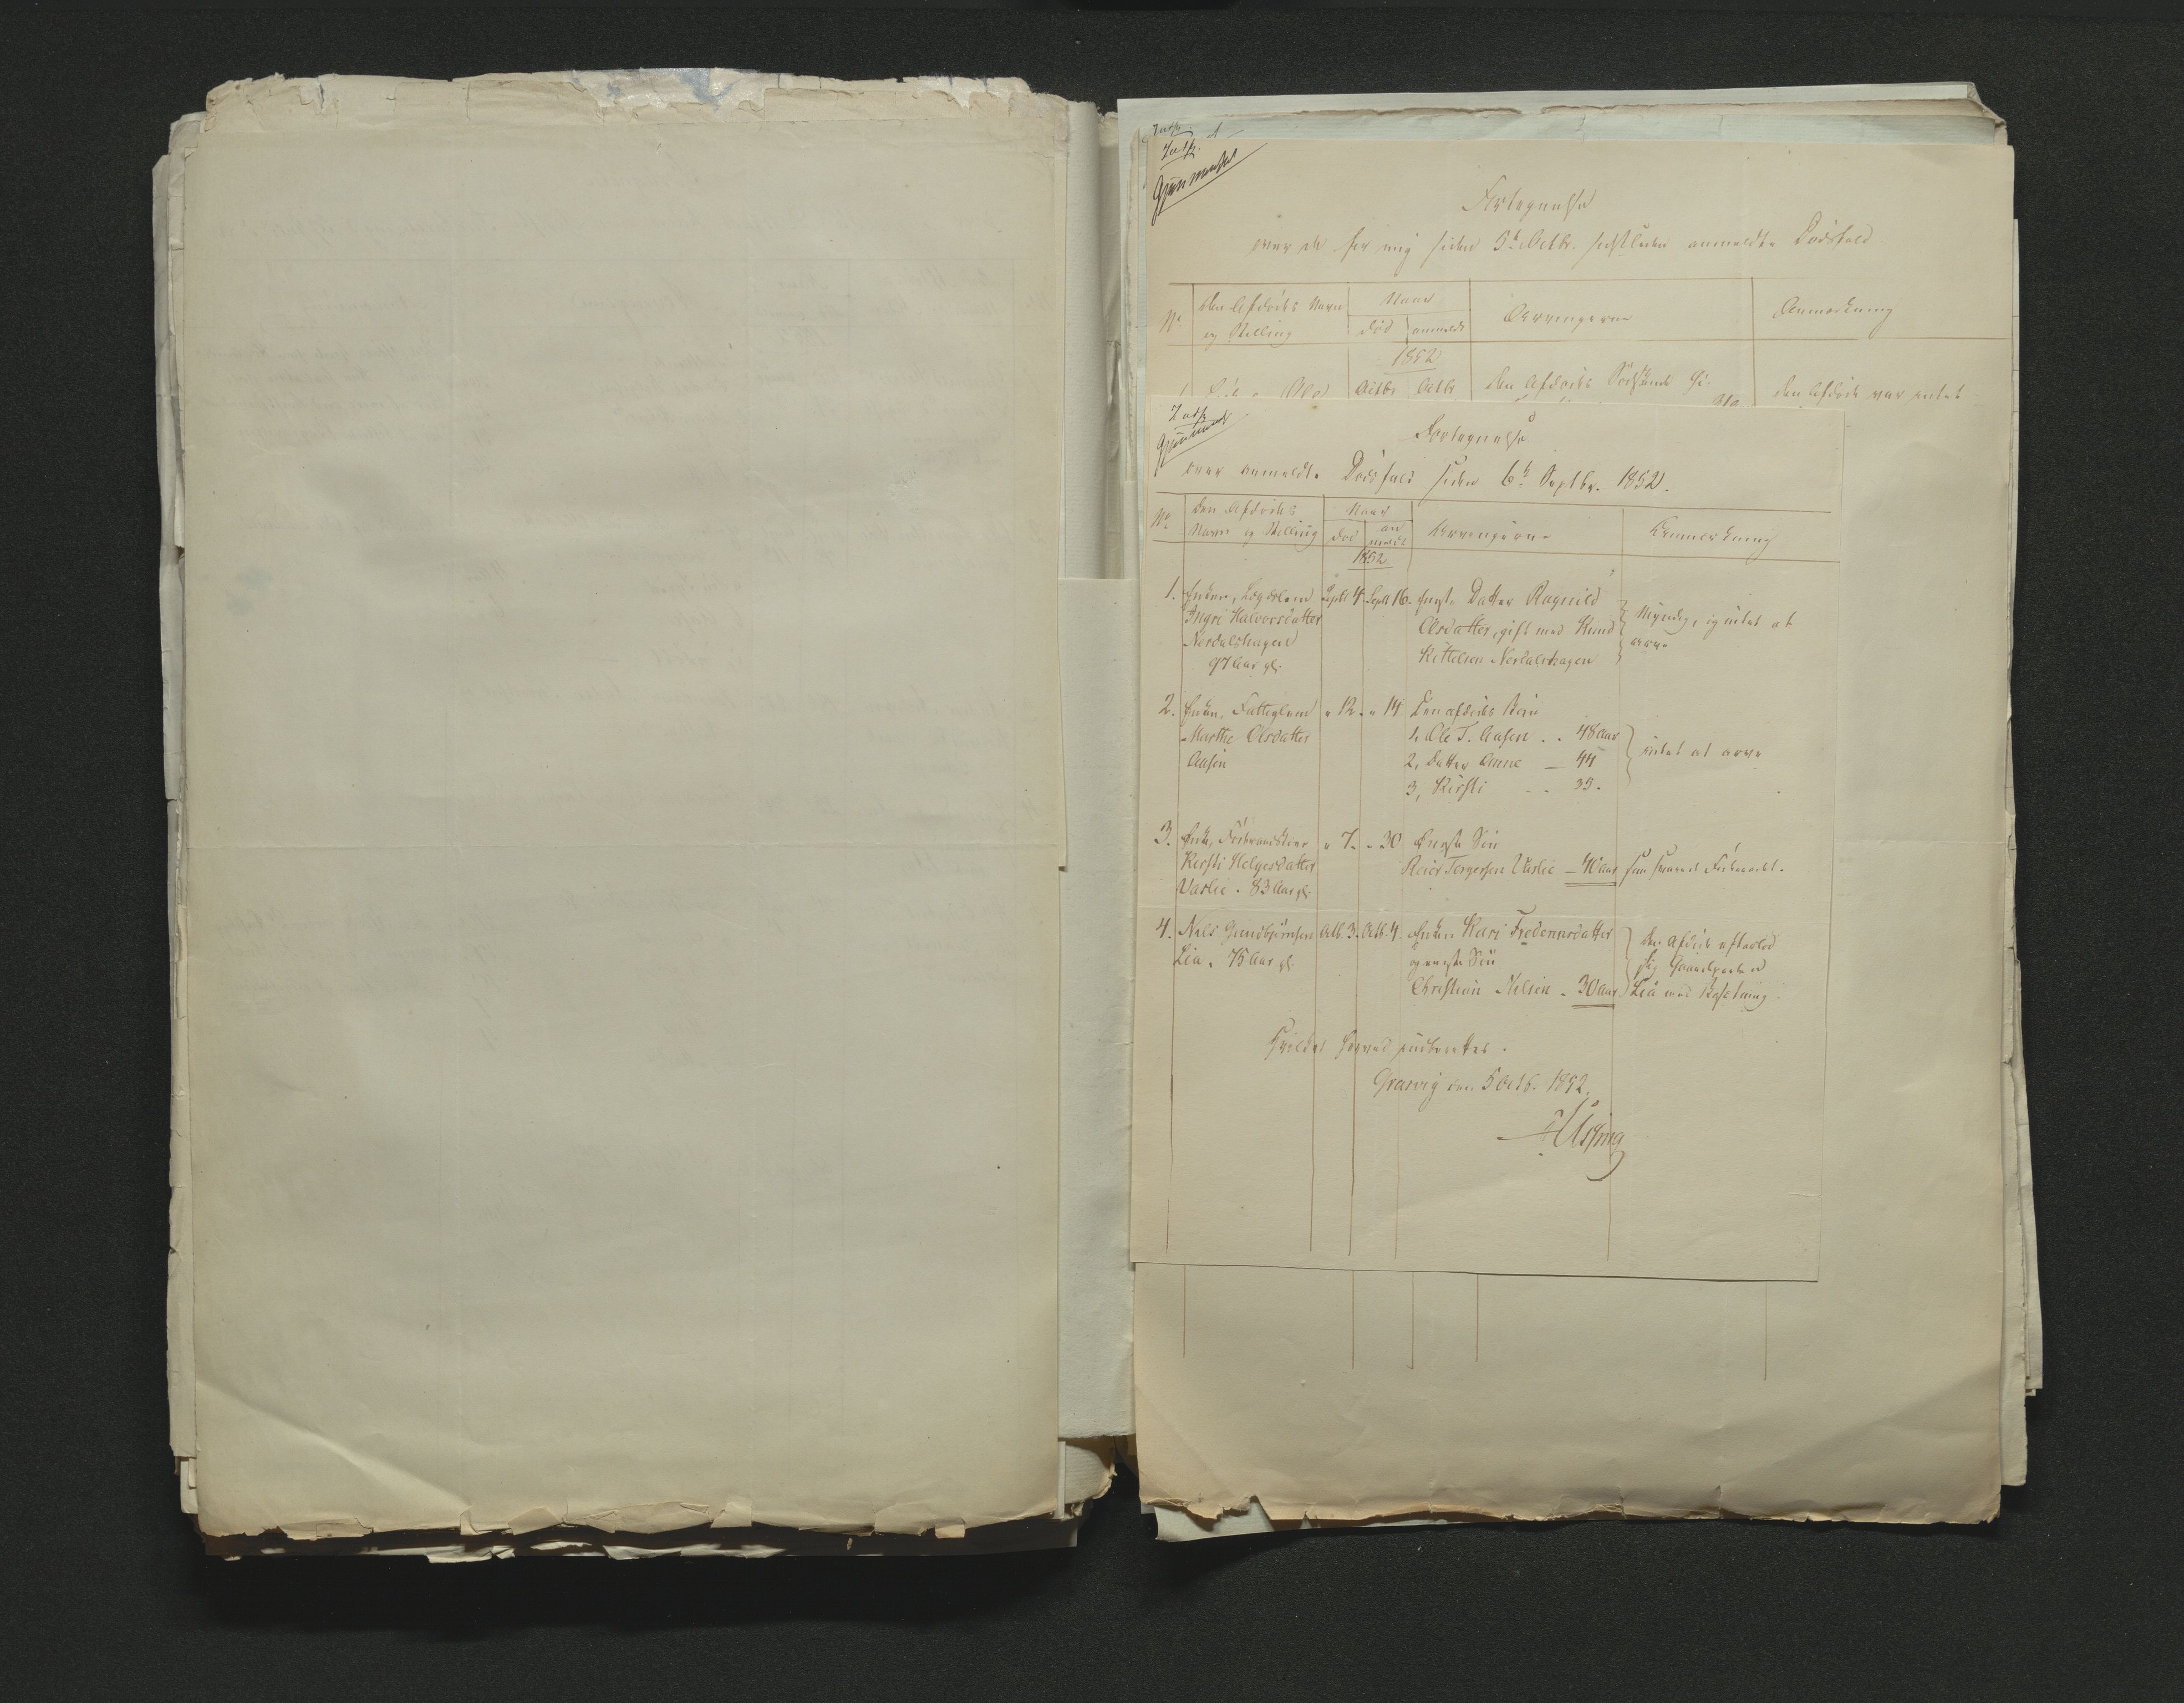 Fortegnelse
over de for mig siden 5te Octbr. sidstleden anmeldte Dødsfald
No
Den Afdødes Navn
og Stilling
Naar
død
anmeldt
Arvingerne
Anmærkning
1852
Octbr Octbr den Afdødes den Afdøde var intet
Fortegnelse
over anmeldte Dødsfald siden 6te Septbr. 1852.
No
Den Afdødes
Navn og Stilling
Naar
død
an
meldt
Arvingerne
Anmærkning
1852
1. Enken, Lægdslem Septb 4. Septb 16. eneste Datter Ragnild
Ingri Halvorsdatter Olsdatter, gift med Knud
Nordalshagen Kittelsen Nordalshagen
97 Aar gl.
Myndig, og intet at
arve
2. Enken, Fattiglem " 12. " 14 Den afdødes Børn
Marthe Olsdatter 1, Ole T. Aasen . . 48 Aar
Aasen 2, Datter Anne — 44
3, Kirsti . . 35.
intet at arve
3. Enke, Føderaadskone " 7. " 30 Eneste Søn
Kirsti Helgesdatter Reier Torgersen Varlie — 40 aar som svared Føderaadet.
Varlie . 83 Aar gl.
4. Nils Gundbjørnsen Octb. 3. Octb. 4. Enken Kari
Lia . 75 Aar gl. og eneste Søn
Christian Nilsen . 30 aar
den Afdøde efterlod
sig Gaardparten
Lia med Besetning.
Hvilket herved indberettes.
den 5 Octb. 1852.